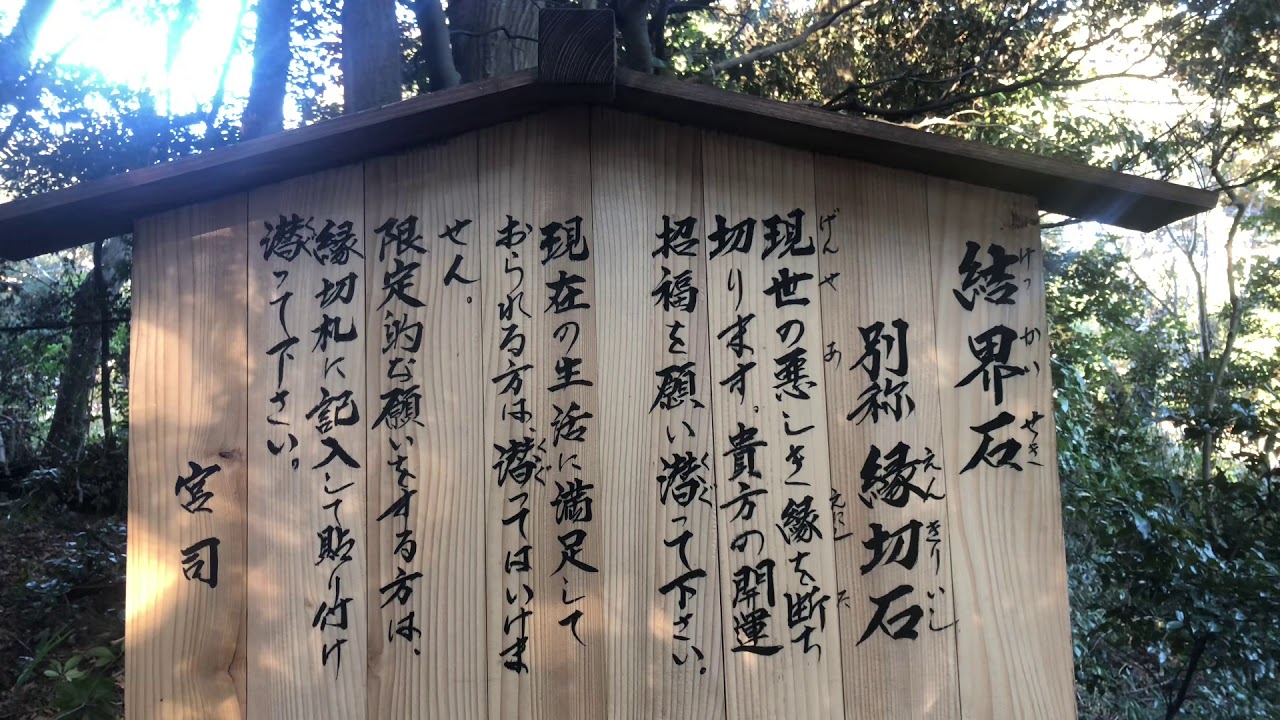 結界石
けっかいせき
別称 縁切石
えんきりいし
現世の悪しき縁を断ち
げんせ あ えにし た
切ります。貴方の開運
招福を願い潜って下さい。
くぐ
現在の生活に満足して
おられる方は、潜ってはいけま
くぐ
せん。
限定的な願いをする方は、
縁切札に記入して貼り付け
潜って下さい。
くぐ
宮司